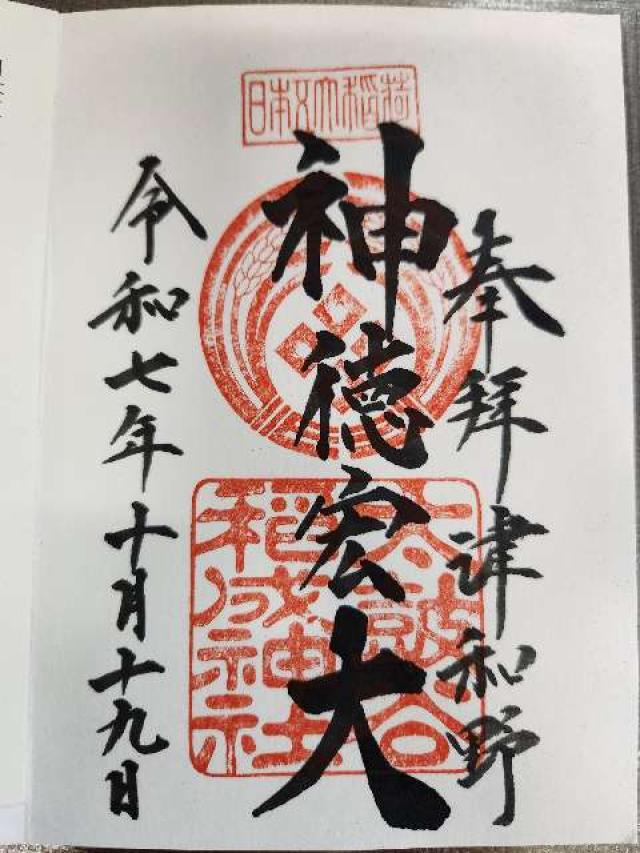 奉拝 津和野
日本五大稲荷
神徳宏大
太皷谷
稲成神社
令和七年十月十九日